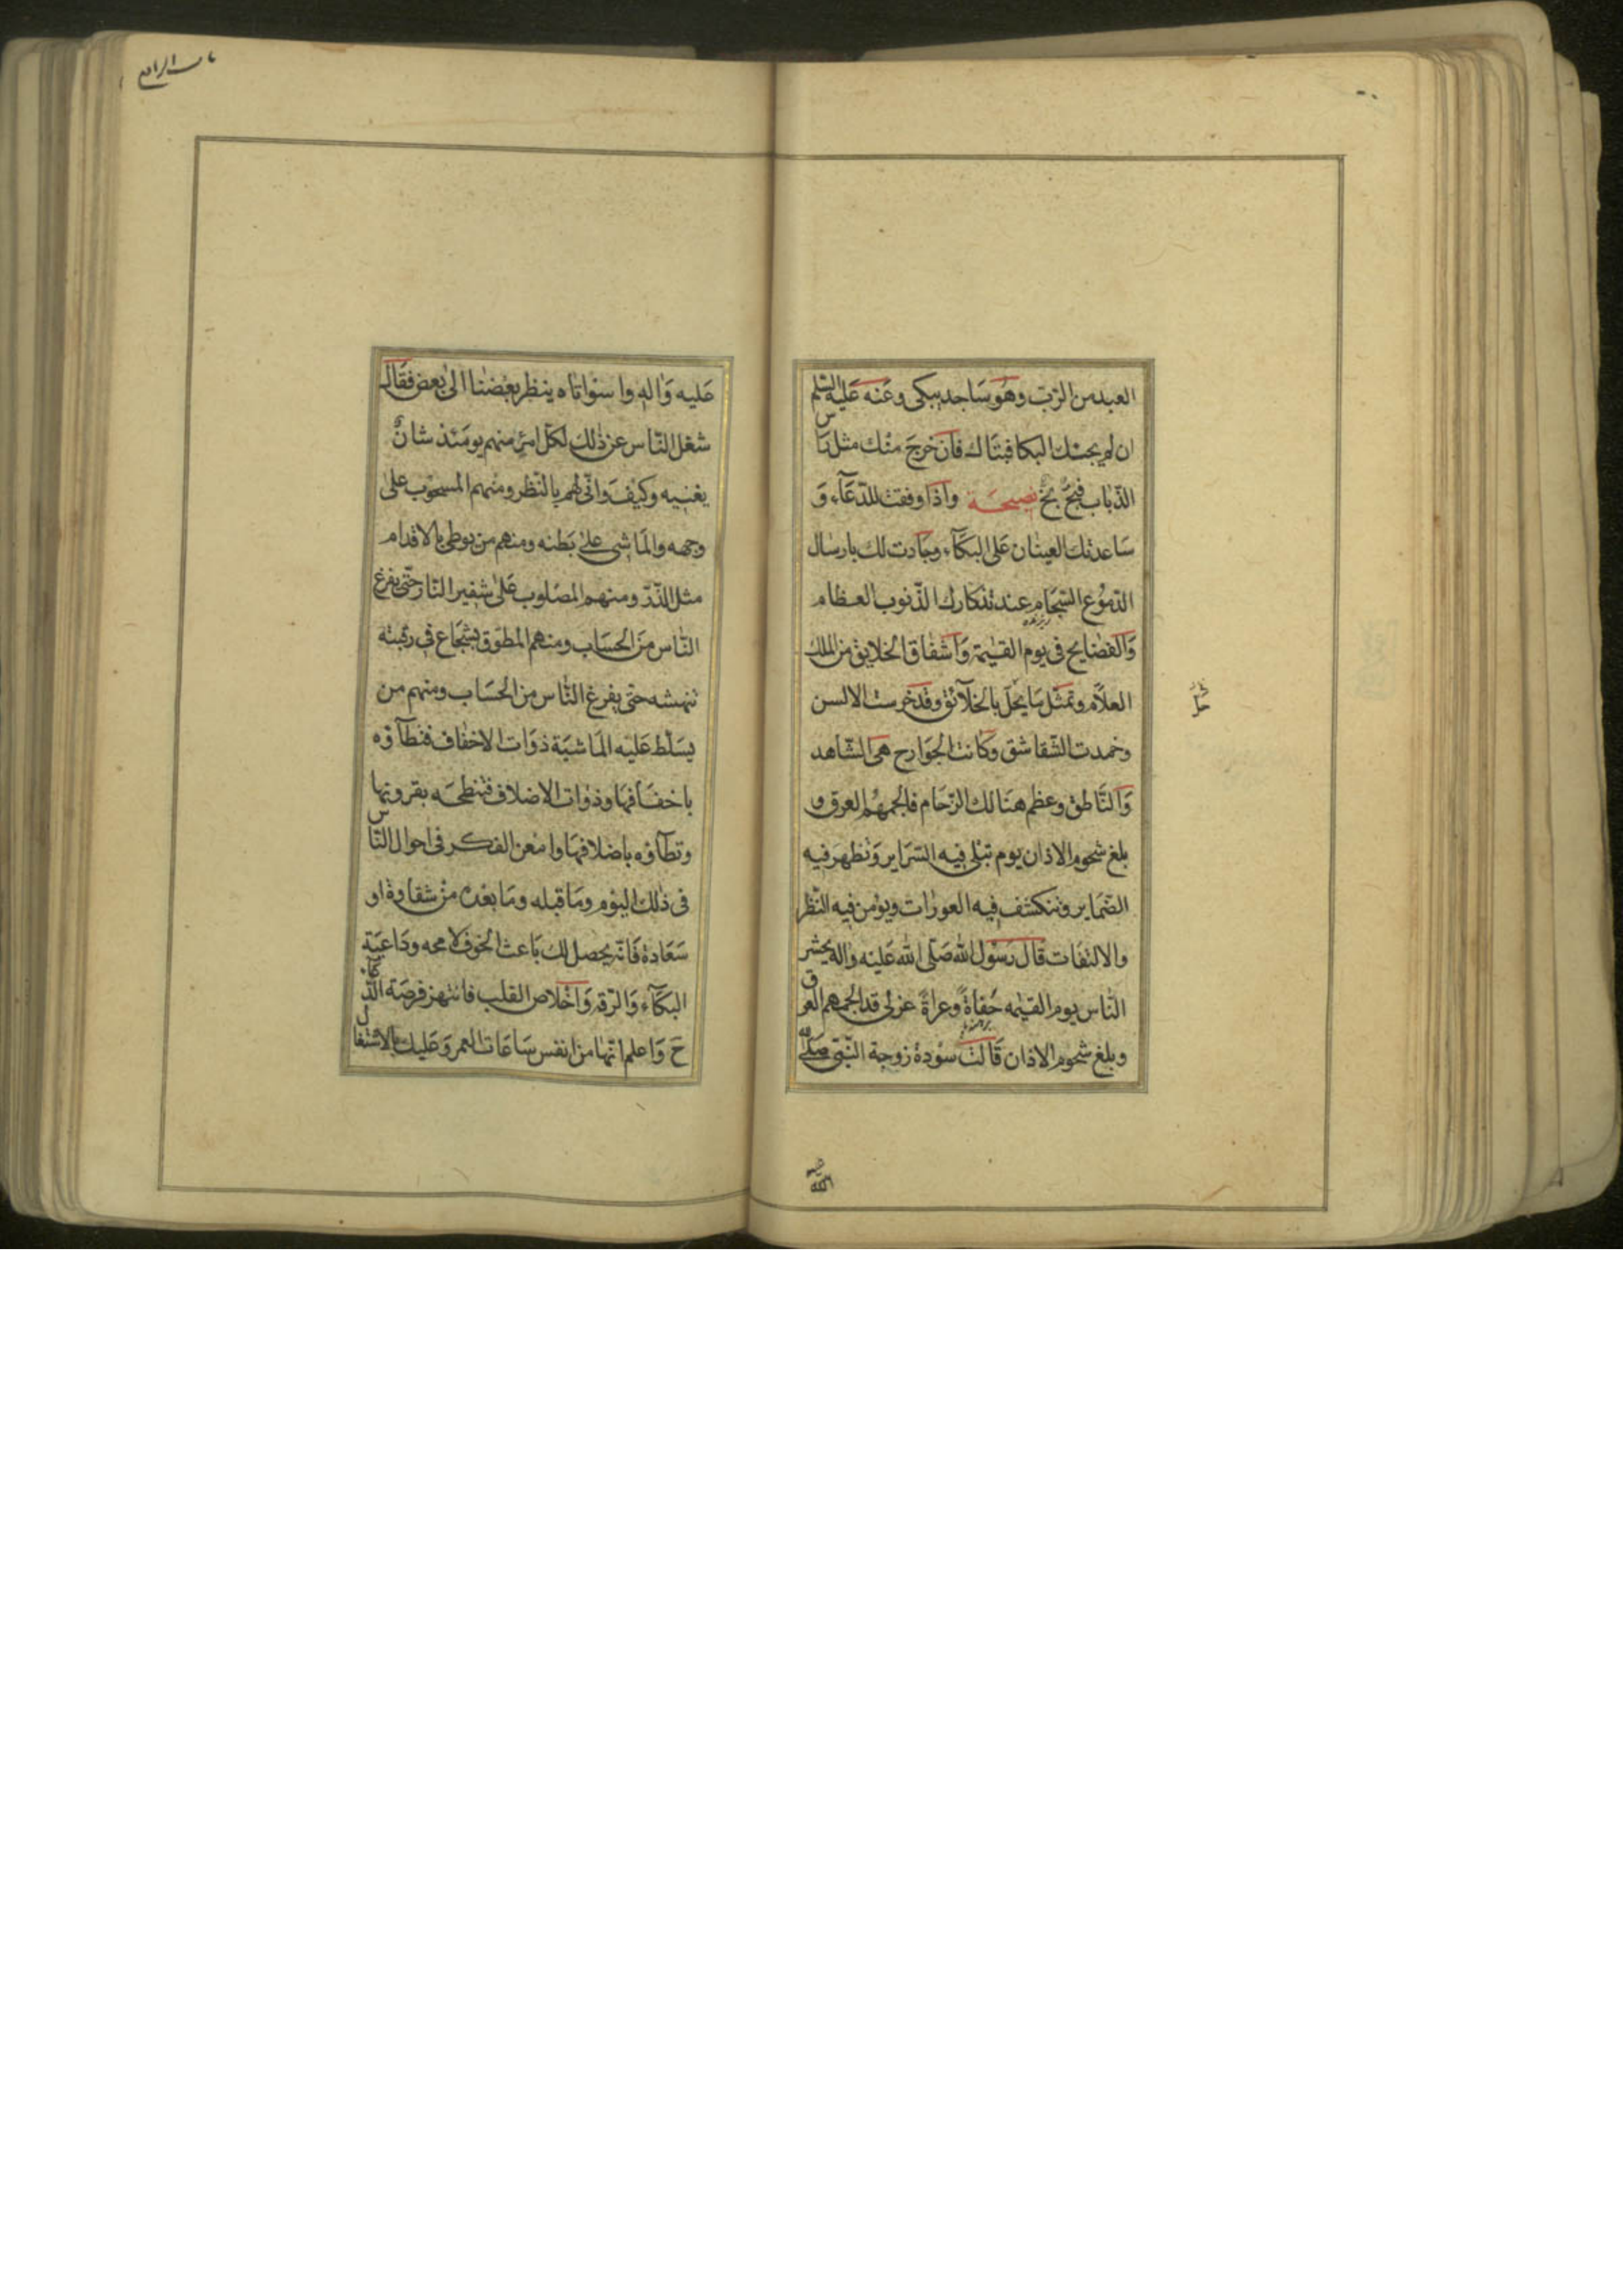 العبد من الرّبّ وهُو سَاجد يبكى وعَنه عَليه السّلم
ان لم يجئك البكا فتباك فَان خرجَ منك مثل رَاس
الذّباب فبخّ بخّ نصيحَة وَاذَا وفقت للدّعَآء وَ
سَاعدتك العينان عَلى البكَآء وجَادت لك بارسَال
الدّموُع السّجَام عند تذكارك الذّنوب العظام
وَالفضَايح فى يوم القيٰمة وَاشفاق الخلايق من الملك
العلاّم وتمثّل مَا يحلّ بالخلآئق وقد خرست الالسن
وخمدت الشّقاشق وَكانت الجوَارح هى الشّاهد
وَالنَّاطق وعظم هنَالك الزّحَام فالجمهُم العرق و
بلغ شحوم الاذان يوم تبلى فيه السّرَاير وَتظهرَ فيه
الضّمَاير وتنكشف فيه العورَات ويؤمن فيه النّظر
والالتفات قالَ رَسُول الله صَلّى الله عَليه وَاله يحشر
النّاس يوم القيٰمه حُفاةً وعراةً عزلى قد الجمهم العرق
وبلغ شحوم الاذان قَالت سوُدة زوجة النّبىّ صَلّى الله
عَليه وَاله وا سواتاه ينظر بعضنا الى بعض فقَال
شغل النّاس عن ذلك لكلّ امرئ منهم يومَئذ شانٌ
يغنيه وكيفَ وانّى لهم بالنّظر ومنهم المسحوُب على
وجهه والمَاشى على بَطنه ومنهم من يوطى بالاقدام
مثل الذّرّ ومنهم المصَلوب عَلى شفير النّار حتّى يفرغ
النّاس منَ الحسَاب ومنهم المطوّق بشجَاع فى رقبته
تنهشه حتى يفرغ النّاس من الحسَاب ومنهم من
يسَلّط عَليه المَاشيَة ذوَات الاخفاف فتطآؤه
باخفَافهَا وذوٰات الاضلاف فتنطحَه بقرونها
وتطآؤه باضلافهَا وامعن الفكر فى احوال النّاس
فى ذلك اليوُم ومَا قبله ومَا بعده من شقاوة او
سَعَادة فَانّه يحصل لك بَاعث الخوف لا محه ودَاعيَة
البكَآء وَالرّقة وَاخلاص القلب فانتهز فرصَة الدّعَآء
حَ وَاعلم انّهَا من انفس سَاعَات العمر وَعَليك بالاشتغال